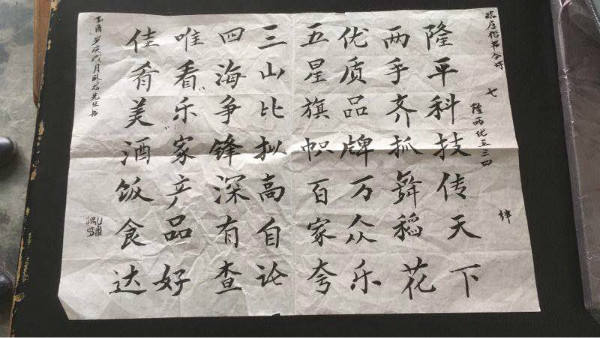 七 律
隆两优五三四
隆平科技传天下
两手齐抓舞稻花
优质品牌万众乐
五星旗帜百家夸
三山比拟高自论
四海争锋深有查
唯看“乐”家产品好
佳肴美酒饭食达